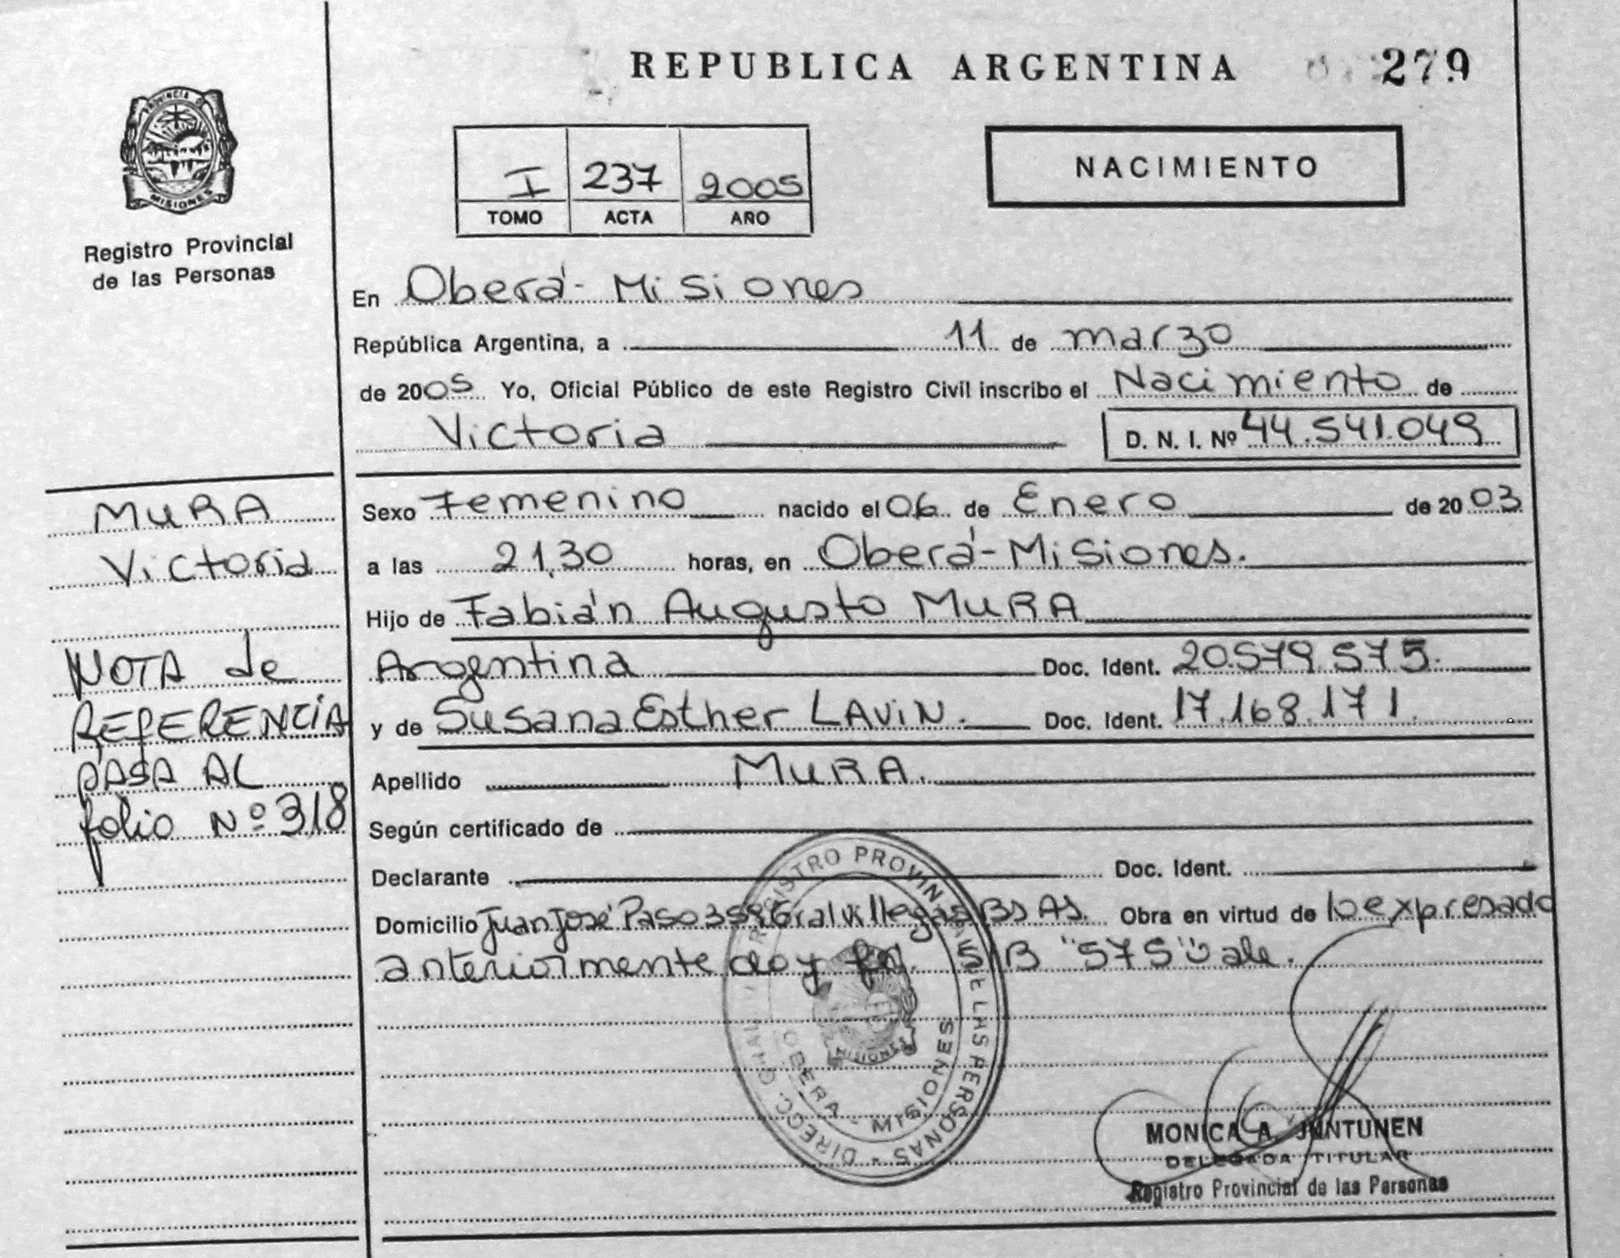 REPUBLICA ARGENTINA 279
PROVINCIA D
MISIONES
Registro Provincial
de las Personas
I 237 2005
TOMO ACTA AÑO
NACIMIENTO
En Oberá - Misiones
República Argentina, a 11 de marzo
de 2005 Yo, Oficial Público de este Registro Civil inscribo el Nacimiento de
Victoria D. N. I. Nº 44.541.049
MURA
Victoria
NOTA de
REFERENCIA
PASA AL
folio Nº 318
Sexo Femenino nacido el 06 de Enero de 2003
a las 21,30 horas, en Oberá - Misiones.
Hijo de Fabián Augusto MURA
Argentina Doc. Ident. 20.579.575.
y de Susana Esther LAVIN. Doc. Ident. 17.168.171.
Apellido MURA.
Según certificado de
Declarante Doc. Ident.
Domicilio Juan José Paso 358 Gral Villegas Bs As. Obra en virtud de lo expresado
anteriormente doy fe. S/B "575" Vale.
REGISTRO PROVIN DE LAS PERSONAS - DIRECC. GRAL.
MISIONES
OBERA - MISIONES
MONICA A. JUNTUNEN
DELEGADA TITULAR
Registro Provincial de las Personas